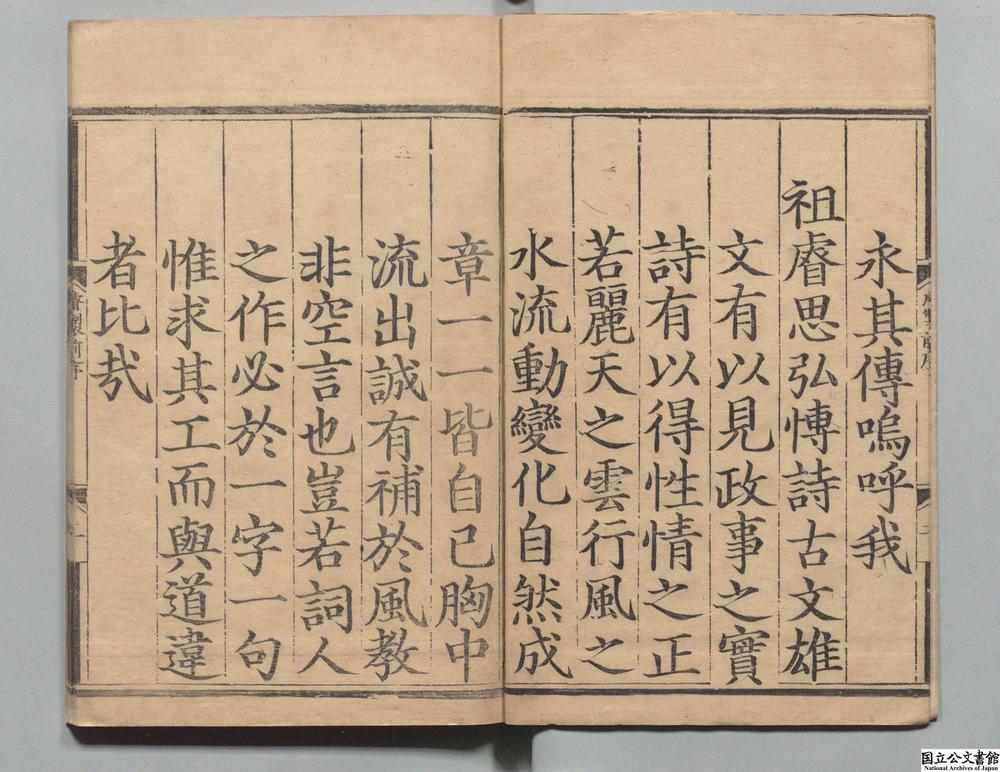 永其傳嗚呼我
祖睿思弘博詩古文雄
文有以見政事之實
詩有以得性情之正
若麗天之雲行風之
水流動變化自然成
章一一皆自己胸中
流出誠有補於風教
非空言也豈若詞人
之作必於一字一句
惟求其工而與道違
者比哉
国立公文書館
National Archives of Japan